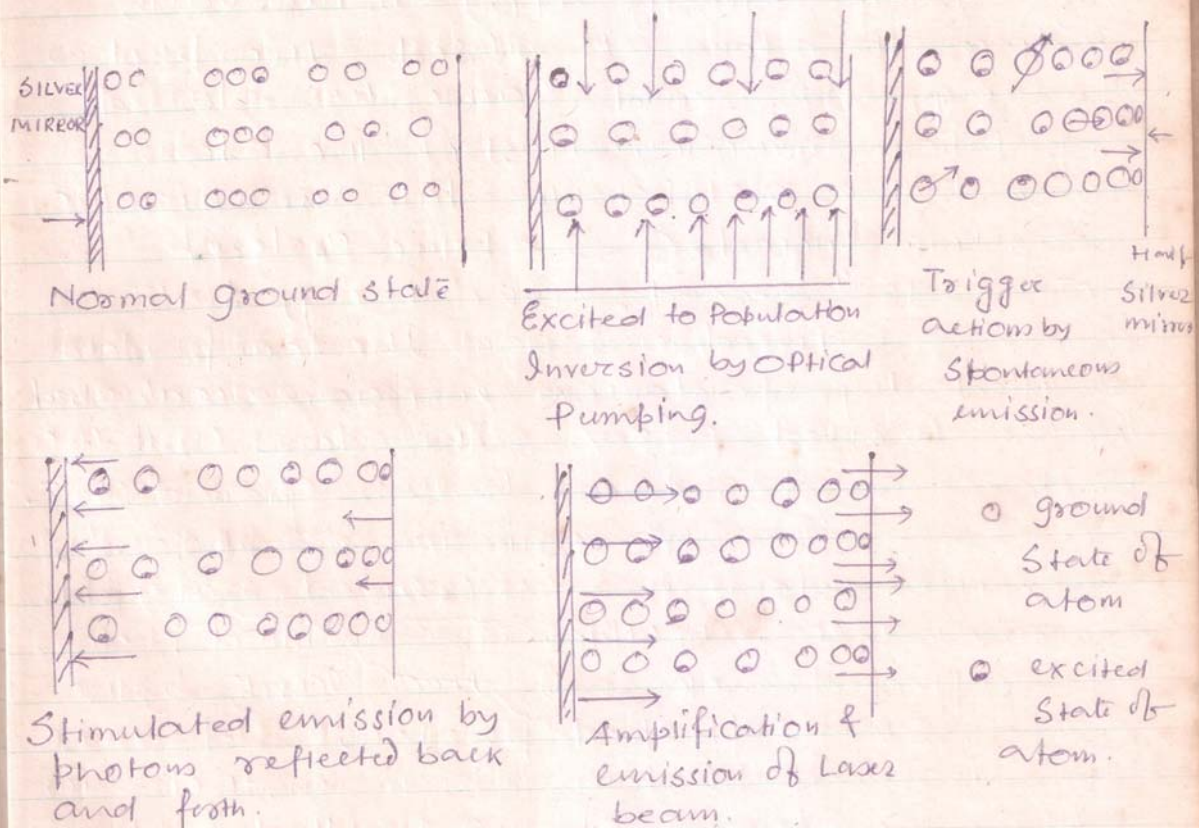 SILVER
MIRROR
Normal ground state
Excited to Population
Inversion by Optical
Pumping.
Trigger
actions by
Spontaneous
emission.
Half
Silver
mirror
Stimulated emission by
photons reflected back
and forth.
Amplification &
emission of Laser
beam.
ground
State of
atom
excited
State of
atom.